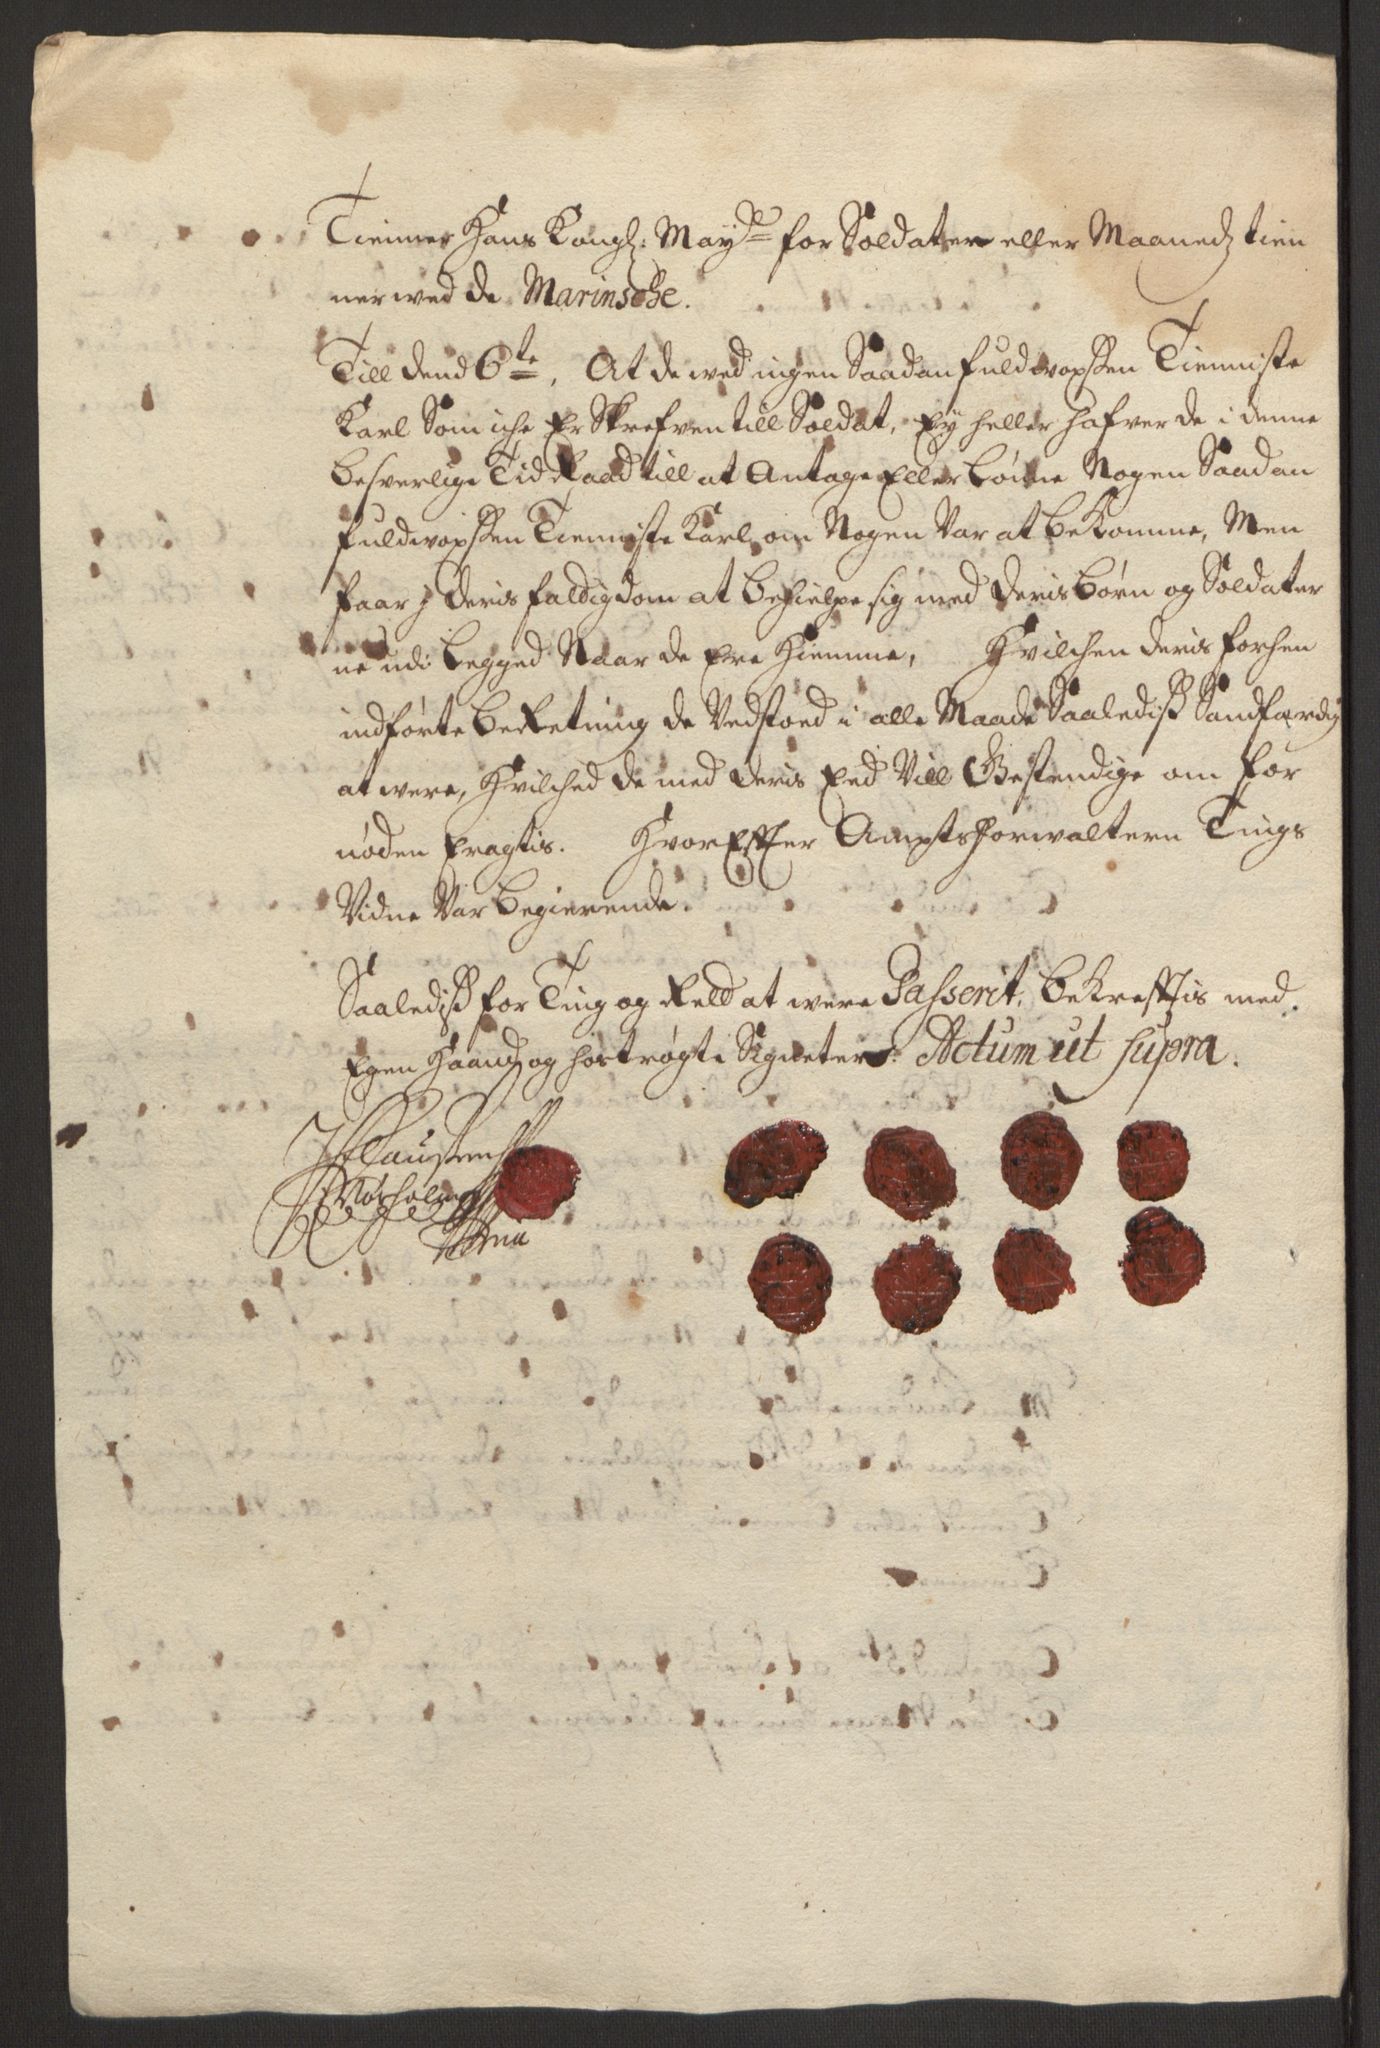 Tienner Hans Kongl: May^tz for Soldater eller Maanedz tien
ner wed de Marinsche.
Till dend 6^te, At de wed ingen Saadan fuldvoxsen Tienniste
Karl Som iche Er Skrefven till Soldat, Ey heller hafver de i denne
besverlige Tid Raad till at Antage Eller Lønne Nogen Saadan
fuldvoxsen Tienniste Karl, om Nogen Var at bekomme, Men
faar j deris faldigdom at behielpe sig med deris børn og Soldater
ne udi Legged Naar de Ere Hiemme, Hvilchen deris forhen
indførte beRetning de Vedstoed i alle Maade Saaledis Sandfærdig
at were, Hvilched de med deris Eed Vill Bestendige om for
nøden Eragtis. HvorEffter Amptsforwaltern Tings
Vidne Var begierende.
Saaledis for Ting og Reed at were Passerit, bekrefftis med
Egen Haand og hostrøgte Signeter. Actum ut supra.